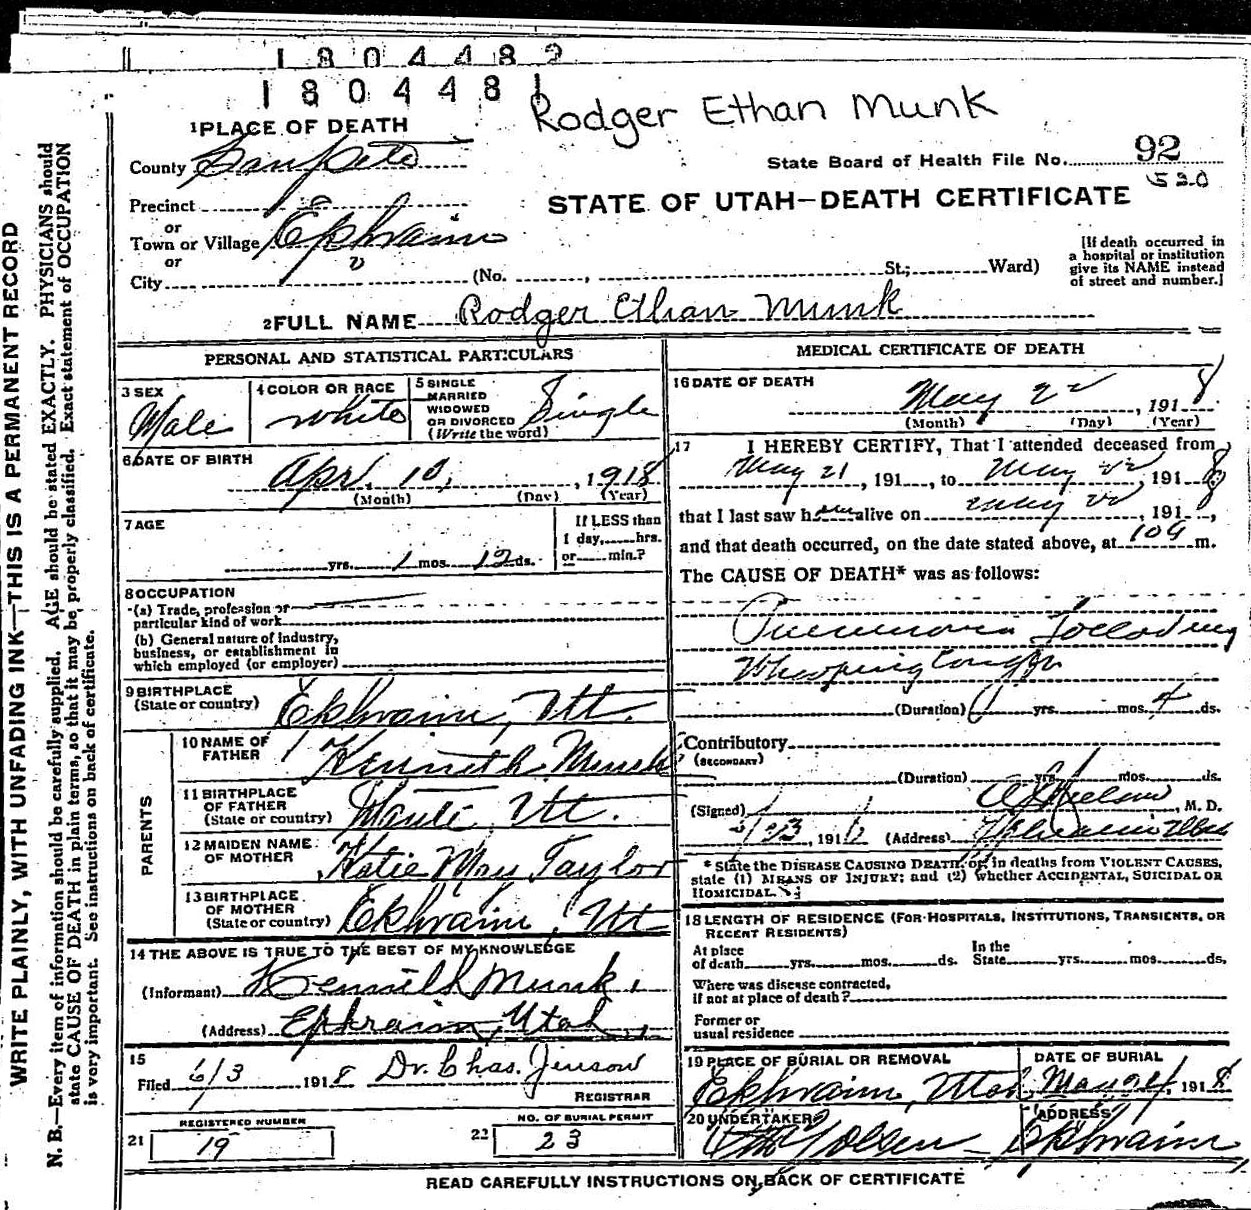 1804482
1804481
Rodger Ethan Munk
1 PLACE OF DEATH
County Sanpete
State Board of Health File No. 92
530
Precinct
STATE OF UTAH—DEATH CERTIFICATE
or
Town or Village Ephraim
or
City (No. , St.; Ward)
[If death occurred in
a hospital or institution
give its NAME instead
of street and number.]
2 FULL NAME Rodger Ethan Munk
PERSONAL AND STATISTICAL PARTICULARS
3 SEX
Male
4 COLOR OR RACE
White
5 SINGLE
MARRIED
WIDOWED
OR DIVORCED
(Write the word)
Single
6 DATE OF BIRTH
Apr. 10, , 1918
(Month) (Day) (Year)
7 AGE
yrs. 1 mos. 12 ds.
If LESS than
1 day, hrs.
or min.?
8 OCCUPATION
(a) Trade, profession or
particular kind of work
(b) General nature of industry,
business, or establishment in
which employed (or employer)
9 BIRTHPLACE
(State or country) Ephraim, Ut.
PARENTS
10 NAME OF
FATHER Kenneth Munk
11 BIRTHPLACE
OF FATHER
(State or country) Manti, Ut.
12 MAIDEN NAME
OF MOTHER Katie May Taylor
13 BIRTHPLACE
OF MOTHER
(State or country) Ephraim, Ut
14 THE ABOVE IS TRUE TO THE BEST OF MY KNOWLEDGE
(Informant) Kenneth Munk.
(Address) Ephraim, Utah
15
Filed 6/3 1918 Dr. Chas. Jenson
REGISTRAR
21 REGISTERED NUMBER
19
22 NO. OF BURIAL PERMIT
23
MEDICAL CERTIFICATE OF DEATH
16 DATE OF DEATH
May 22, 1918
(Month) (Day) (Year)
17 I HEREBY CERTIFY, That I attended deceased from
May 21, 191 , to May 22, 1918
that I last saw him alive on May 22, 1918,
and that death occurred, on the date stated above, at m.
The CAUSE OF DEATH* was as follows:
Pneumonia following
Whooping Cough
(Duration) yrs. mos. 4 ds.
Contributory
(SECONDARY)
(Duration) yrs. mos. ds.
(Signed) , M. D.
, 191 (Address) Ephraim Utah
* State the DISEASE CAUSING DEATH, or, in deaths from VIOLENT CAUSES,
state (1) MEANS OF INJURY; and (2) whether ACCIDENTAL, SUICIDAL OR
HOMICIDAL.
18 LENGTH OF RESIDENCE (FOR HOSPITALS, INSTITUTIONS, TRANSIENTS, OR
RECENT RESIDENTS)
At place
of death yrs. mos. ds.
In the
State yrs. mos. ds.
Where was disease contracted,
if not at place of death?
Former or
usual residence
19 PLACE OF BURIAL OR REMOVAL
Ephraim, Utah
DATE OF BURIAL
May 24, 1918
20 UNDERTAKER
Olsen
ADDRESS
Ephraim
READ CAREFULLY INSTRUCTIONS ON BACK OF CERTIFICATE
WRITE PLAINLY, WITH UNFADING INK—THIS IS A PERMANENT RECORD
N. B.—Every item of information should be carefully supplied. AGE should be stated EXACTLY. PHYSICIANS should
state CAUSE OF DEATH in plain terms, so that it may be properly classified. Exact statement of OCCUPATION
is very important. See instructions on back of certificate.